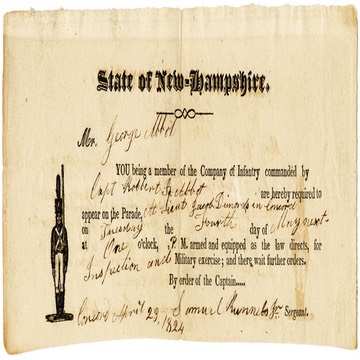 State of New-Hampshire.
Mr. George Abbot
YOU being a member of the Company of Infantry commanded by
Capt Robert Abbot are hereby required to
appear on the Parade, at Lieut Jacob in Concord
on Tuesday the Fourth day of May next
at One o'clock, P. M. armed and equipped as the law directs, for
Inspection and Military exercise; and there wait further orders.
By order of the Captain.....
Samuel Runnels Jr. Sergeant.
Concord April 29, 1824